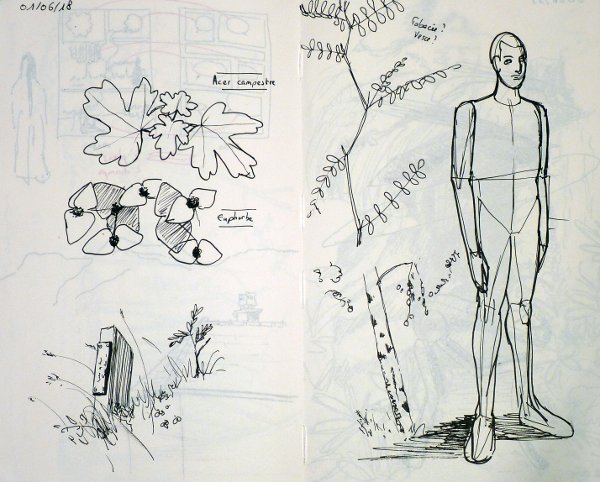 01/06/18
Acer campestre
Euphorbe
Fabacée?
Vesce?